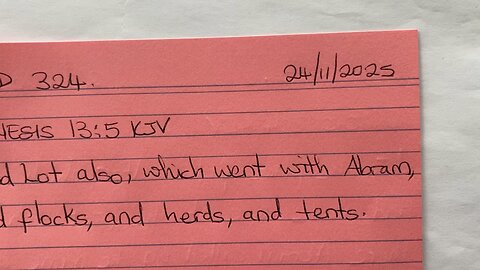 D 324. 24/11/2025
NESIS 13:5 KJV
d Lot also, which went with Abram,
d flocks, and herds, and tents.